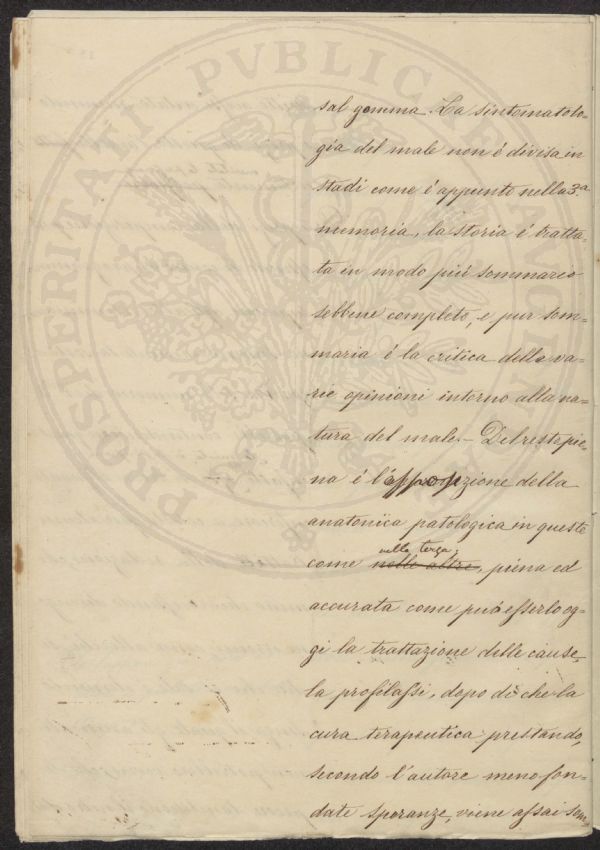 sal gemma. La sintomatolo=
gia del male non é divisa in
stadi come é appunto nella 3.a
memoria, la storia é tratta,
ta in modo piú sommario
sebbene completo, e pur som=
maria é la critica delle va=
rie opinioni intorno alla na=
tura del male. - Del resto pie,
na é l'esposizione della
anatomia patologica in queste
nella terza;
come nelle altre, piena ed
accurata come può esserlo og=
gi la trattazione delle cause,
la profilassi, dopo di che la
cura terapeutica prestando,
secondo l'autore meno fon=
date speranze, viene assai som,
PROSPERITATI PVBLICAE AVGENDAE